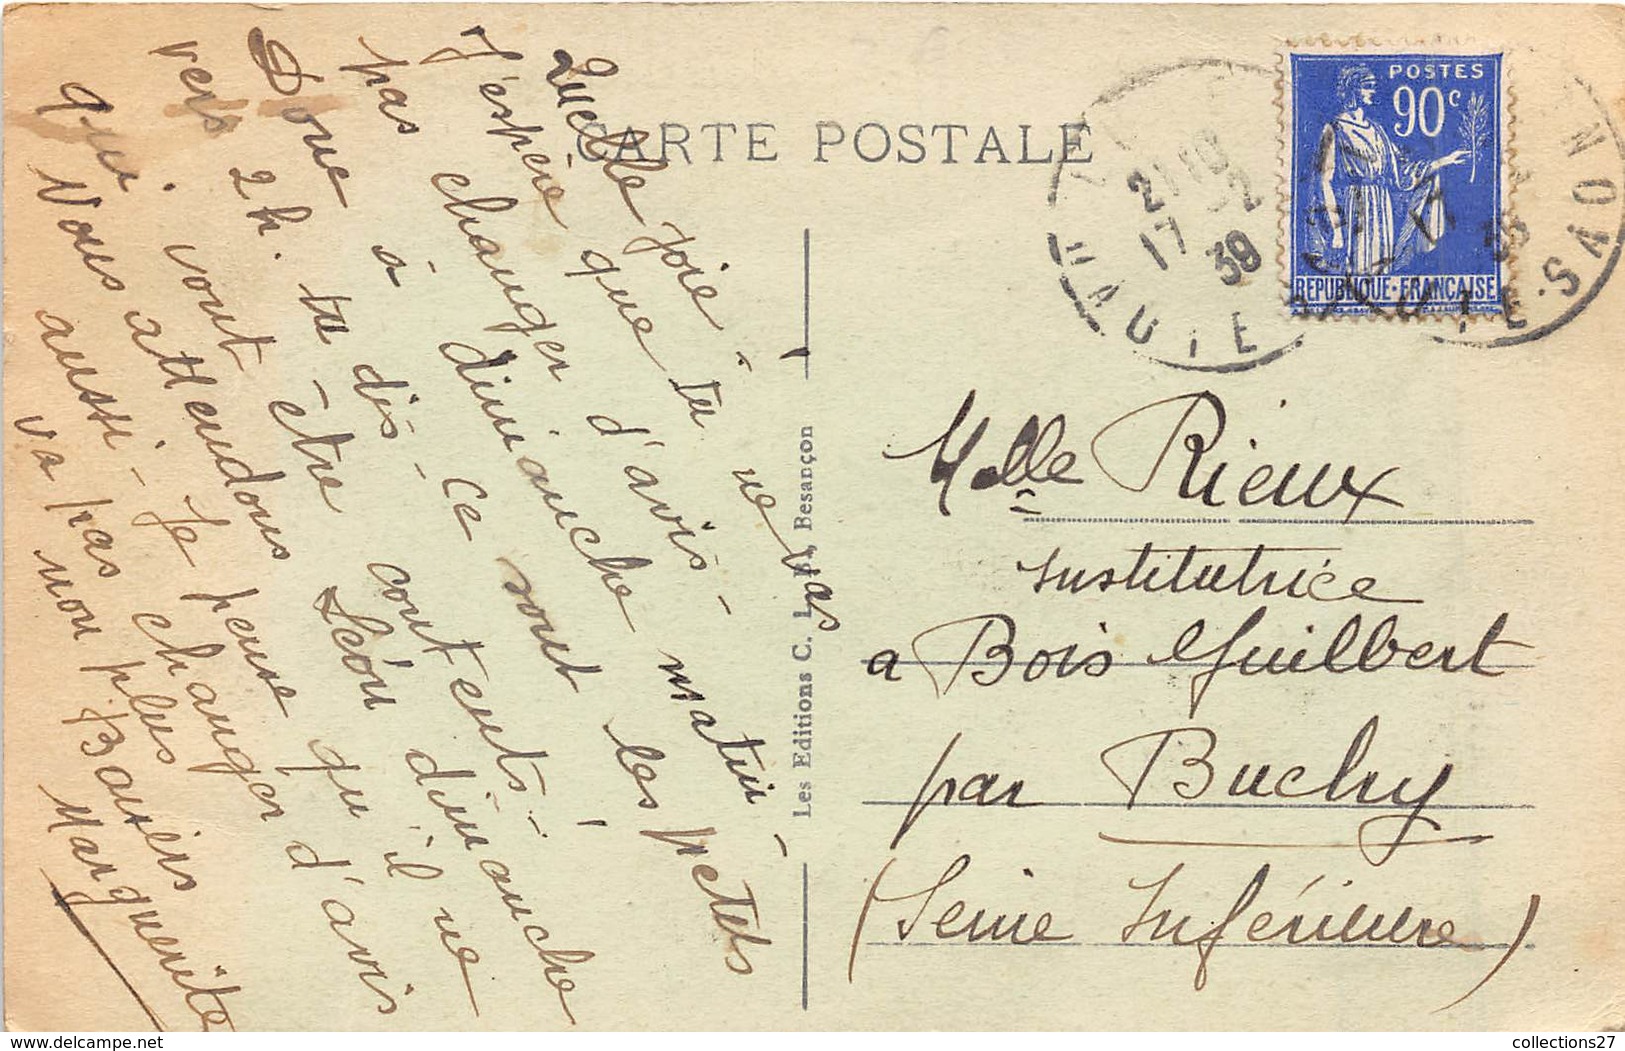 CARTE POSTALE
Quelle joie ! tu ne vas
J'espère que d'avis -
pas changer dimanche matin -
Donc à ce sont les petits
vers 2h. tu dis - contents - !
qui vont être Léon dimanche
Nous attendons qu'il ne
aussi - Je pense d'avis
va pas changer
non plus Baisers
Marguerite
Les Editions C. L. B., Besançon
POSTES
90c
REPUBLIQUE·FRANÇAISE
21 10
17 - 2
39
HAUTE
HAUTE-SAÔNE
Melle Rieux
Institutrice
a Bois Guilbert
par Buchy
(Seine Inférieure)
collections27